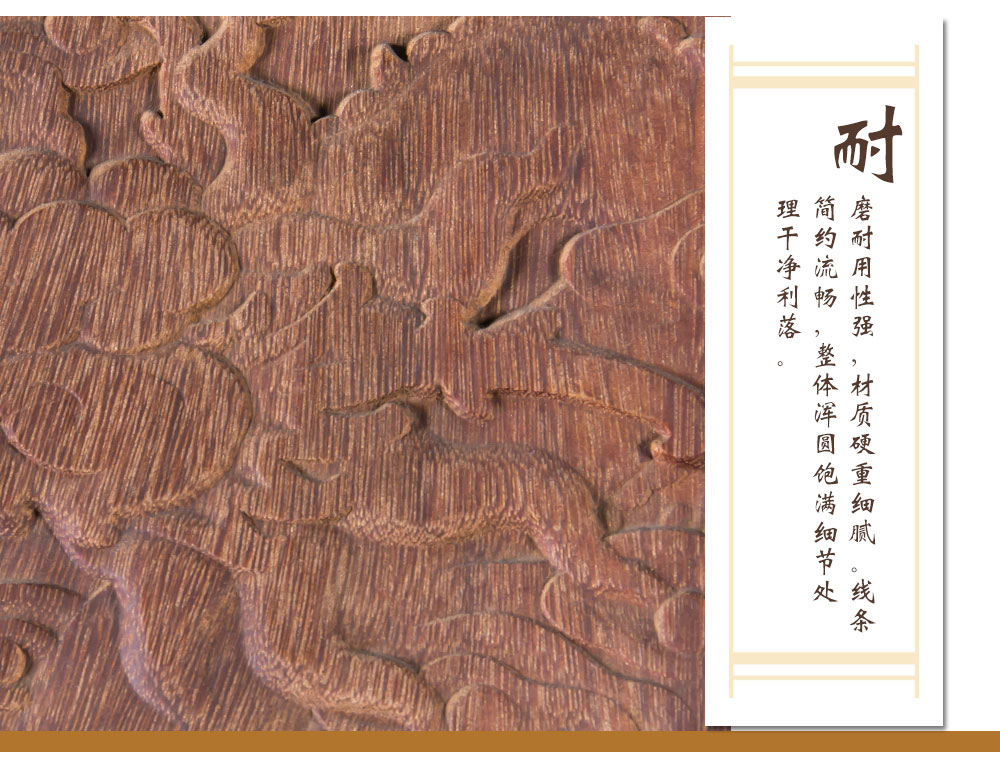 耐
磨耐用性强，材质硬重细腻。线条
简约流畅，整体浑圆饱满细节处
理干净利落。